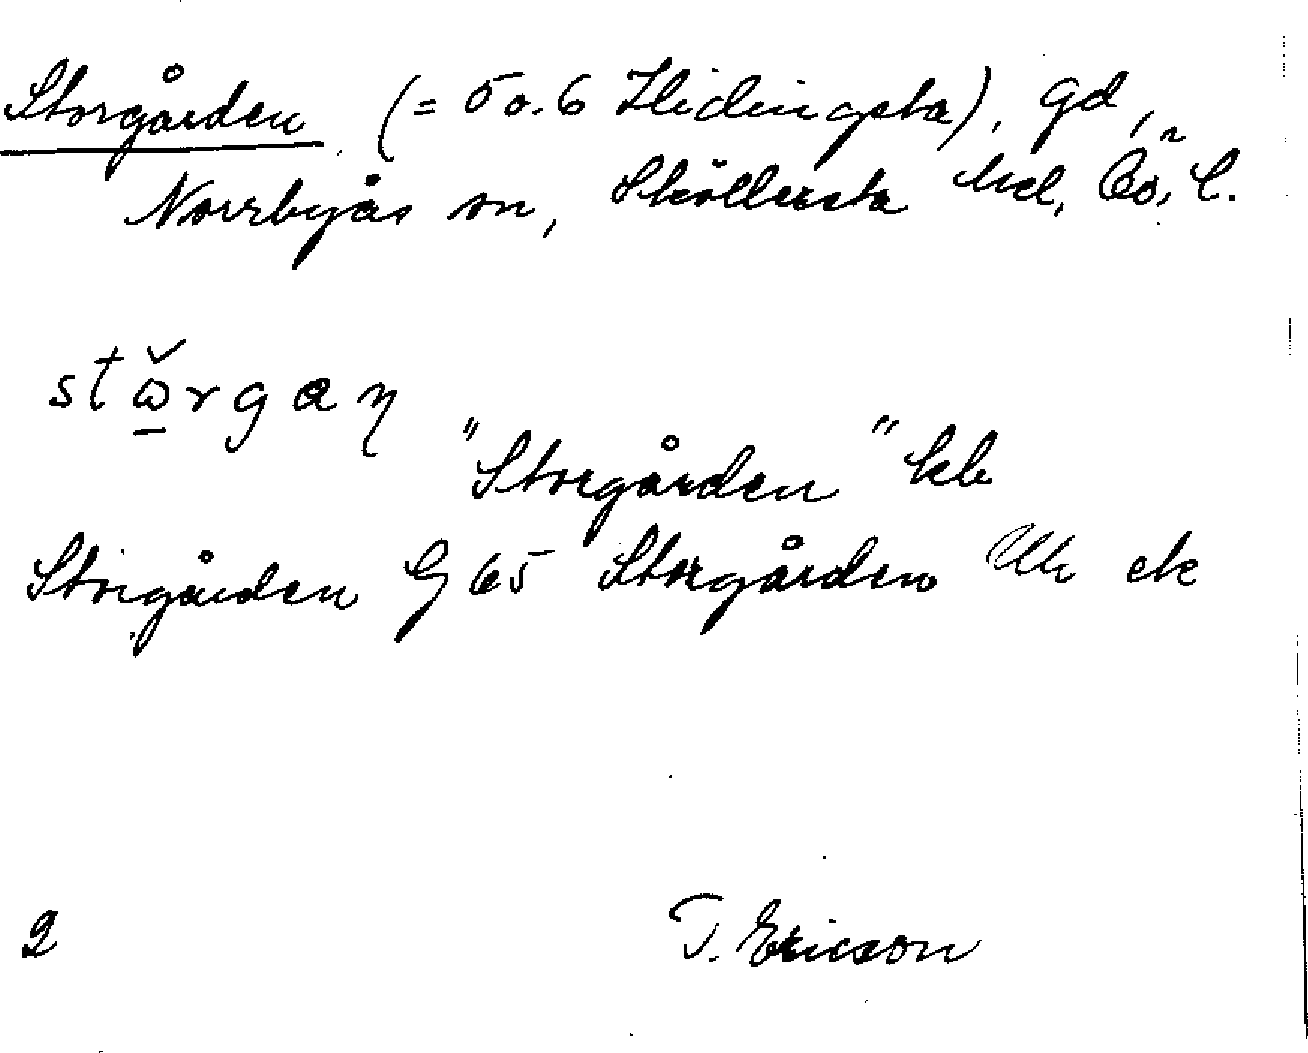 Storgården (= 5 o. 6 Hidingsta), gd,
Norrbyås sn, Sköllersta hd, Ö. n. l.
stω̌rgaŋ
"Storgården" kb
Storgården G 65 Storgården ek
2
T. Ericson